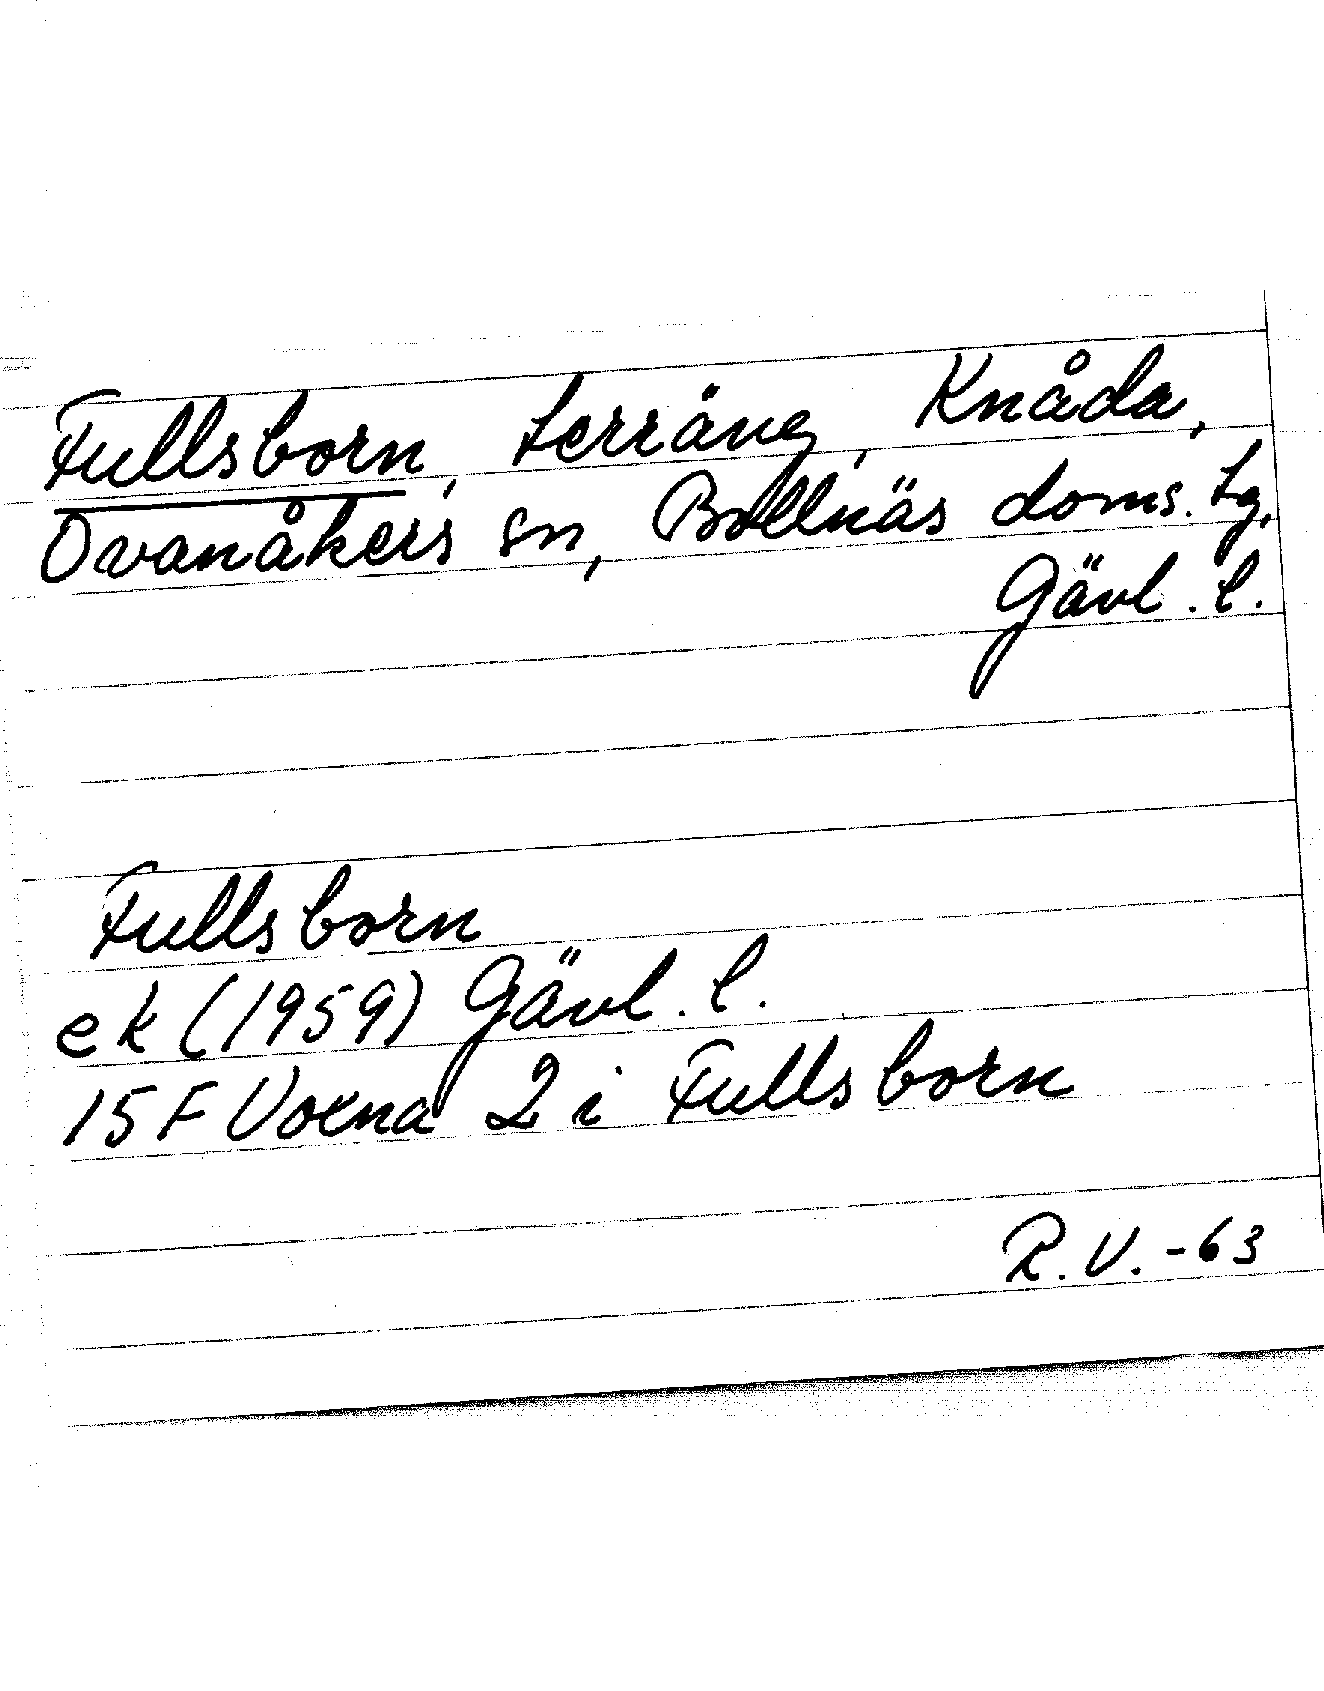 Fullsborn, terräng, Knåda,
Ovanåkers sn, Bollnäs doms. tg,
Gävl. l.
Fullsborn
ek (1959) Gävl. l.
15 F Voxna 2 i Fullsborn
R.V. -63